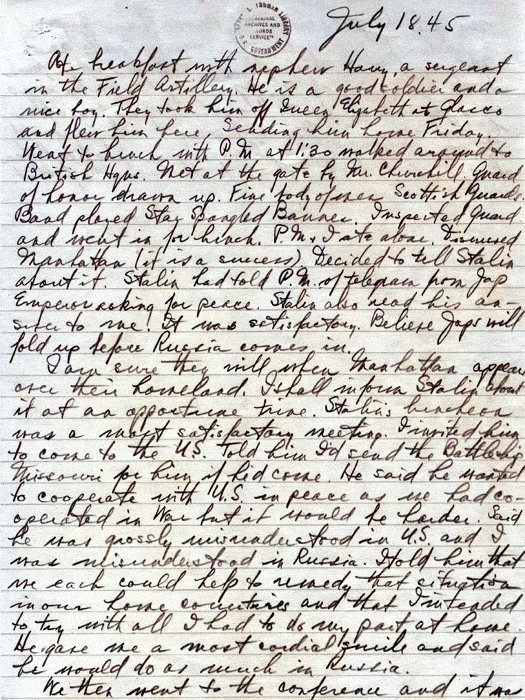 S. TRUMAN LIBRARY
NATIONAL
ARCHIVES AND
RECORDS
SERVICE
U.S. GOVERNMENT
July 18, 45
Ate breakfast with nephew Harry, a sergeant
in the Field Artillery. He is a good soldier and a
nice boy. They took him off Queen Elizabeth at Glasco
and flew him here. Sending him home Friday.
Went to lunch with P.M. at 1:30 walked around to
British Hqrs. Met at the gate by Mr. Churchill. Guard
of honor drawn up. Fine body of men Scottish Guards.
Band played Star Spangled Banner. Inspected Guard
and went in for lunch. P.M. & I ate alone. Discussed
Manhattan (it is a success). Decided to tell Stalin
about it. Stalin had told P.M. of telegram from Jap
Emperor asking for peace. Stalin also read his an-
swer to me. It was satisfactory. Believe Japs will
fold up before Russia comes in.
I am sure they will when Manhattan appears
over their homeland. I shall inform Stalin about
it at an opportune time. Stalin's luncheon
was a most satisfactory meeting. I invited him
to come to the U.S. Told him I'd send the Battleship
Missouri for him if he'd come. He said he wanted
to cooperate with U.S. in peace as we had co-
operated in War but it would be harder. Said
he was grossly misunderstood in U.S. and I
was misunderstood in Russia. I told him that
we each could help to remedy that situation
in our home countries and that I intended
to try with all I had to do my part at home.
He gave me a most cordial smile and said
he would do as much in Russia.
We then went to the conference and it was